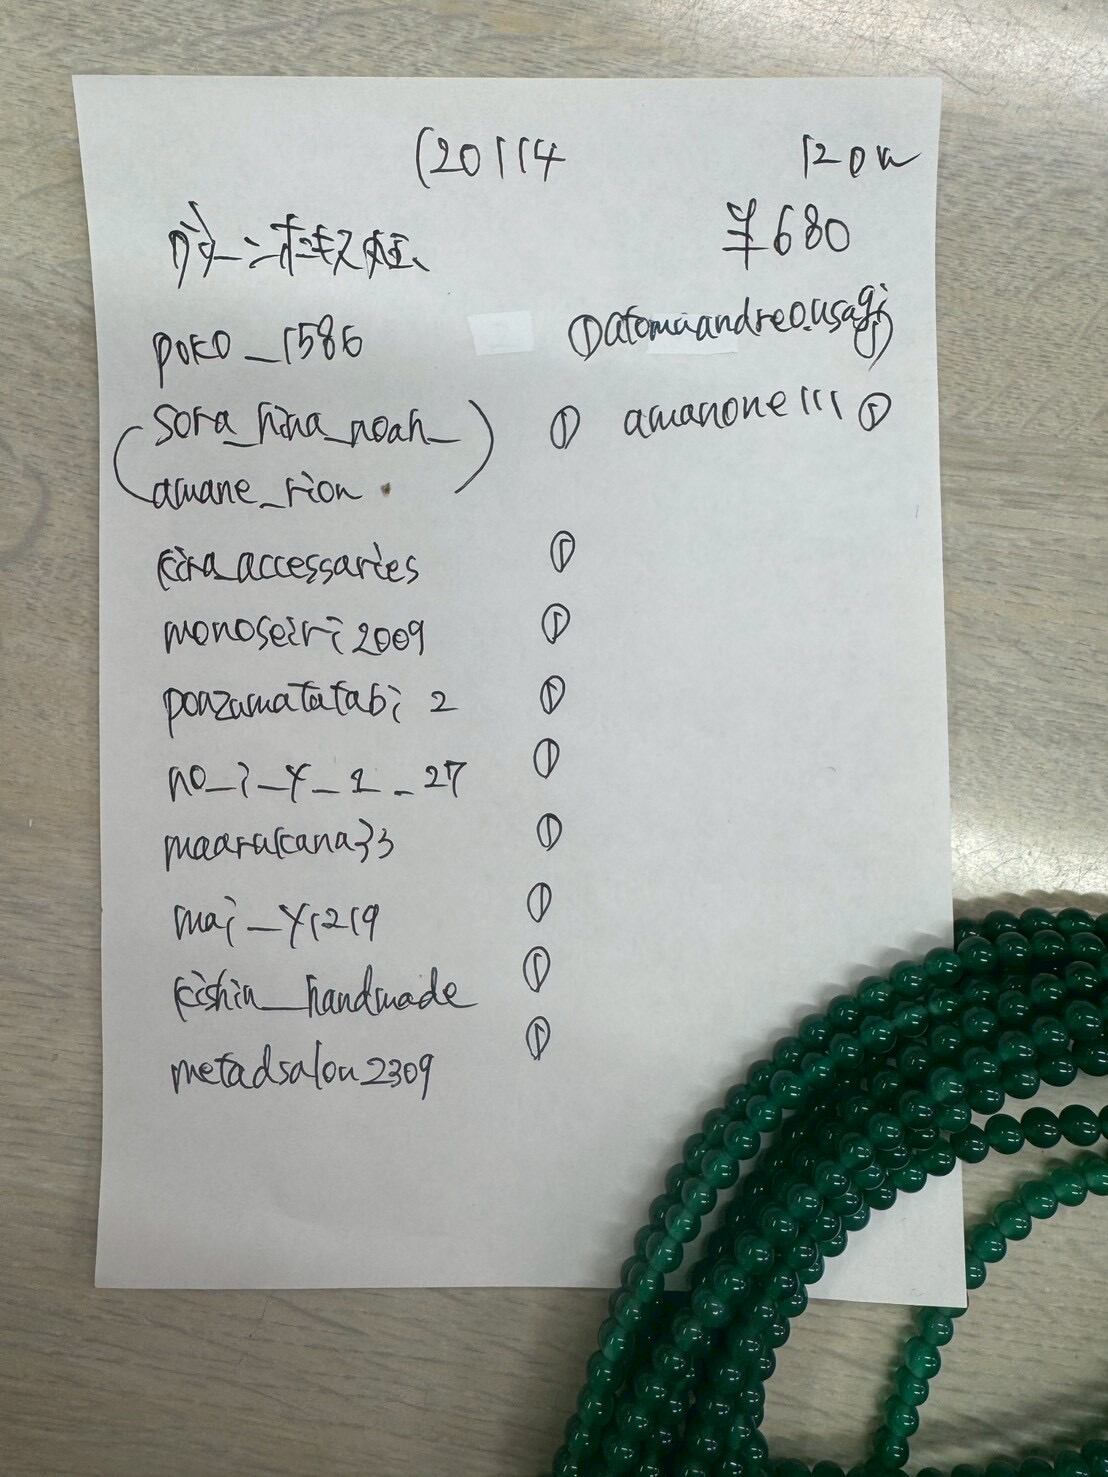 120114 120n
¥680
poko_1586 ①atomuandreo.usagi
(sora_hina_noah_) ① amanone111 ①
amane_rion
kira_accessaries ①
monoseiri2009 ①
ponzumatatabi2 ①
no_i_y_1_27 ①
maarukana33 ①
mai_y1219 ①
kishin_handmade ①
metadsalon2309 ①